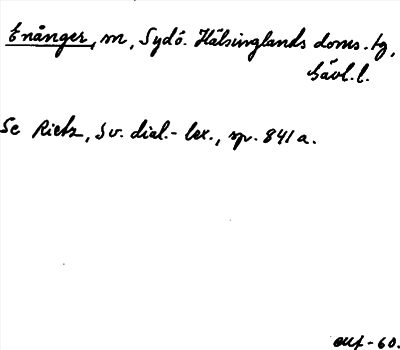 Enånger, m, Sydö. Hälsinglands doms. tg,
Gävl. l.
Se Rietz, Sv. dial.-lex., sp. 841 a.
-60.